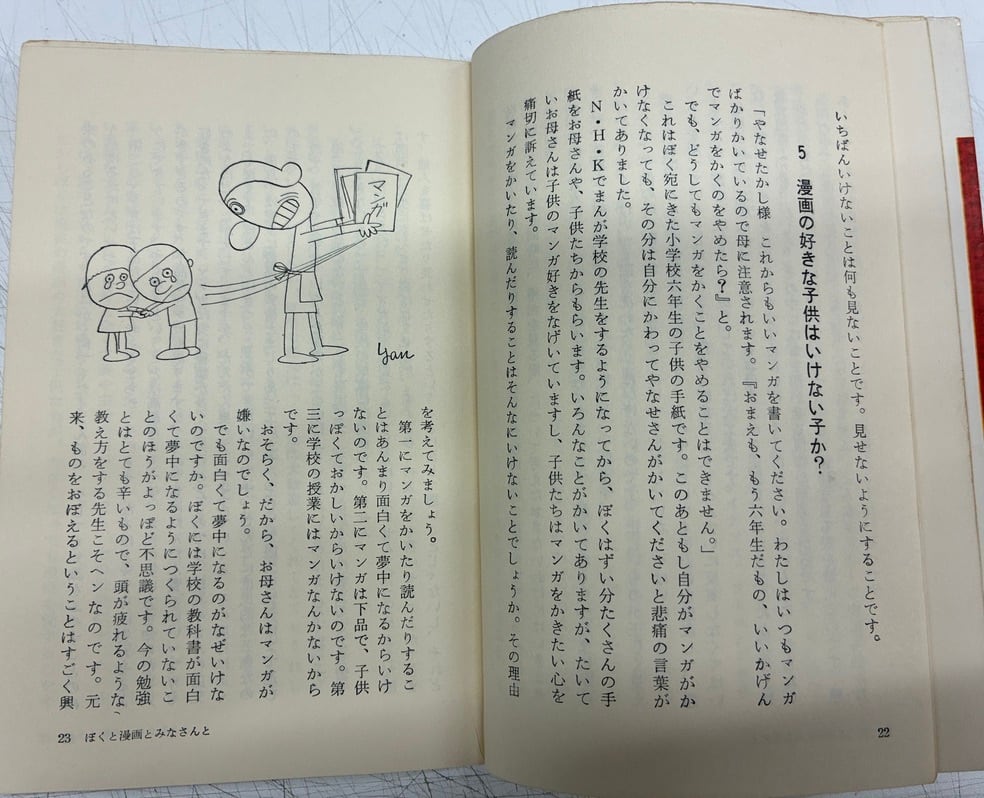 いちばんいけないことは何も見ないことです。見せないようにすることです。
5 漫画の好きな子供はいけない子か?
「やなせたかし様 これからもいいマンガを書いてください。わたしはいつもマンガ
ばかりかいているので母に注意されます。『おまえも、もう六年生だもの、いいかげん
でマンガをかくのをやめたら?』と。
でも、どうしてもマンガをかくことをやめることはできません。」
これはぼく宛にきた小学校六年生の子供の手紙です。このあともし自分がマンガがか
けなくなっても、その分は自分にかわってやなせさんがかいてくださいと悲痛の言葉が
かいてありました。
N・H・Kでまんが学校の先生をするようになってから、ぼくはずい分たくさんの手
紙をお母さんや、子供たちからもらいます。いろんなことがかいてありますが、たいて
いお母さんは子供のマンガ好きをなげいていますし、子供たちはマンガをかきたい心を
痛切に訴えています。
マンガをかいたり、読んだりすることはそんなにいけないことでしょうか。その理由
22
マンガ
yan
を考えてみましょう。
第一にマンガをかいたり読んだりするこ
とはあんまり面白くて夢中になるからいけ
ないのです。第二にマンガは下品で、子供
っぽくておかしいからいけないのです。第
三に学校の授業にはマンガなんかないから
です。
おそらく、だから、お母さんはマンガが
嫌いなのでしょう。
でも面白くて夢中になるのがなぜいけな
いのですか。ぼくには学校の教科書が面白
くて夢中になるようにつくられていないこ
とのほうがよっぽど不思議です。今の勉強
とはとても辛いもので、頭が疲れるような
教え方をする先生こそヘンなのです。元
来、ものをおぼえるということはすごく興
23 ぼくと漫画とみなさんと